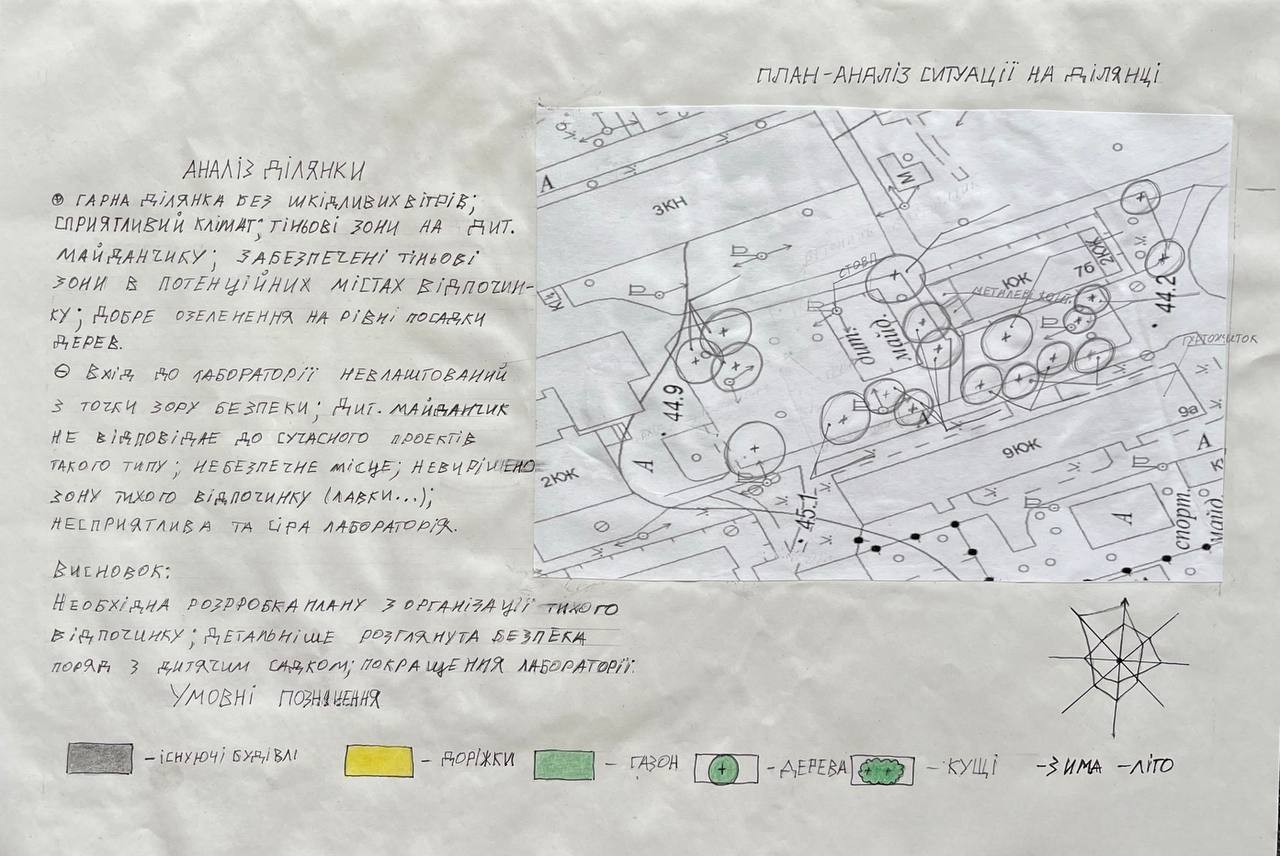 ПЛАН-АНАЛІЗ СИТУАЦІЇ НА ДІЛЯНЦІ
АНАЛІЗ ДІЛЯНКИ
⊕ ГАРНА ДІЛЯНКА БЕЗ ШКІДЛИВИХ ВІТРІВ;
СПРИЯТЛИВИЙ КЛІМАТ; ТІНЬОВІ ЗОНИ НА ДИТ.
МАЙДАНЧИКУ; ЗАБЕЗПЕЧЕНІ ТІНЬОВІ
ЗОНИ В ПОТЕНЦІЙНИХ МІСТАХ ВІДПОЧИН-
КУ; ДОБРЕ ОЗЕЛЕНЕННЯ НА РІВНІ ПОСАДКИ
ДЕРЕВ.
⊖ ВХІД ДО ЛАБОРАТОРІЇ НЕВЛАШТОВАНИЙ
З ТОЧКИ ЗОРУ БЕЗПЕКИ; ДИТ. МАЙДАНЧИК
НЕ ВІДПОВІДАЄ ДО СУЧАСНОГО ПРОЕКТІВ
ТАКОГО ТИПУ; НЕБЕЗПЕЧНЕ МІСЦЕ; НЕВИРІШЕНО
ЗОНУ ТИХОГО ВІДПОЧИНКУ (ЛАВКИ...);
НЕСПРИЯТЛИВА ТА СІРА ЛАБОРАТОРІЯ.
ВИСНОВОК:
НЕОБХІДНА РОЗРРОБКА ПЛАНУ З ОРГАНІЗАЦІЇ ТИХОГО
ВІДПОЧИНКУ; ДЕТАЛЬНІШЕ РОЗГЛЯНУТА БЕЗПЕКА
ПОРЯД З ДИТЯЧИМ САДКОМ; ПОКРАЩЕННЯ ЛАБОРАТОРІЇ.
УМОВНІ ПОЗНАЧЕННЯ
-ІСНУЮЧІ БУДІВЛІ
- ДОРІЖКИ
- ГАЗОН
-ДЕРЕВА
- КУЩІ
-ЗИМА -ЛІТО
А
3КН
М
СТОВП
КЖ
ЮЖ
7б
2ЮЖ
44.2
дит.
майд.
44.9
А
2КЖ
45.1
9КЖ
9а
ГУРТОЖИТОК
А
К
А
спорт.
майд.